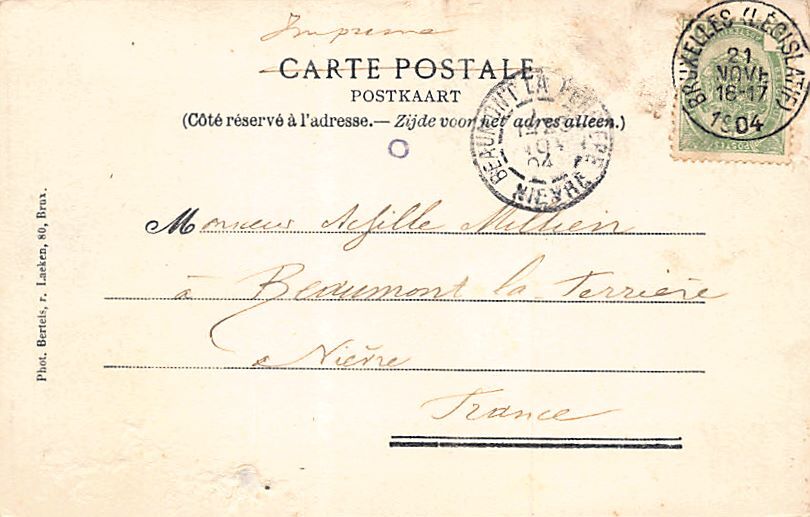 Imprimé
CARTE POSTALE
POSTKAART
(Côté réservé à l'adresse.— Zijde voor het adres alleen.)
BRUXELLES (LÉGISLATIF)
21
NOVE
16-17
1904
BEAUMONT LA FERRIERE
04
NIEVRE
Monsieur Achille Millien
à Beaumont la Ferrière
à Nièvre
France
Phot. Bertels, r. Laeken, 80, Brux.